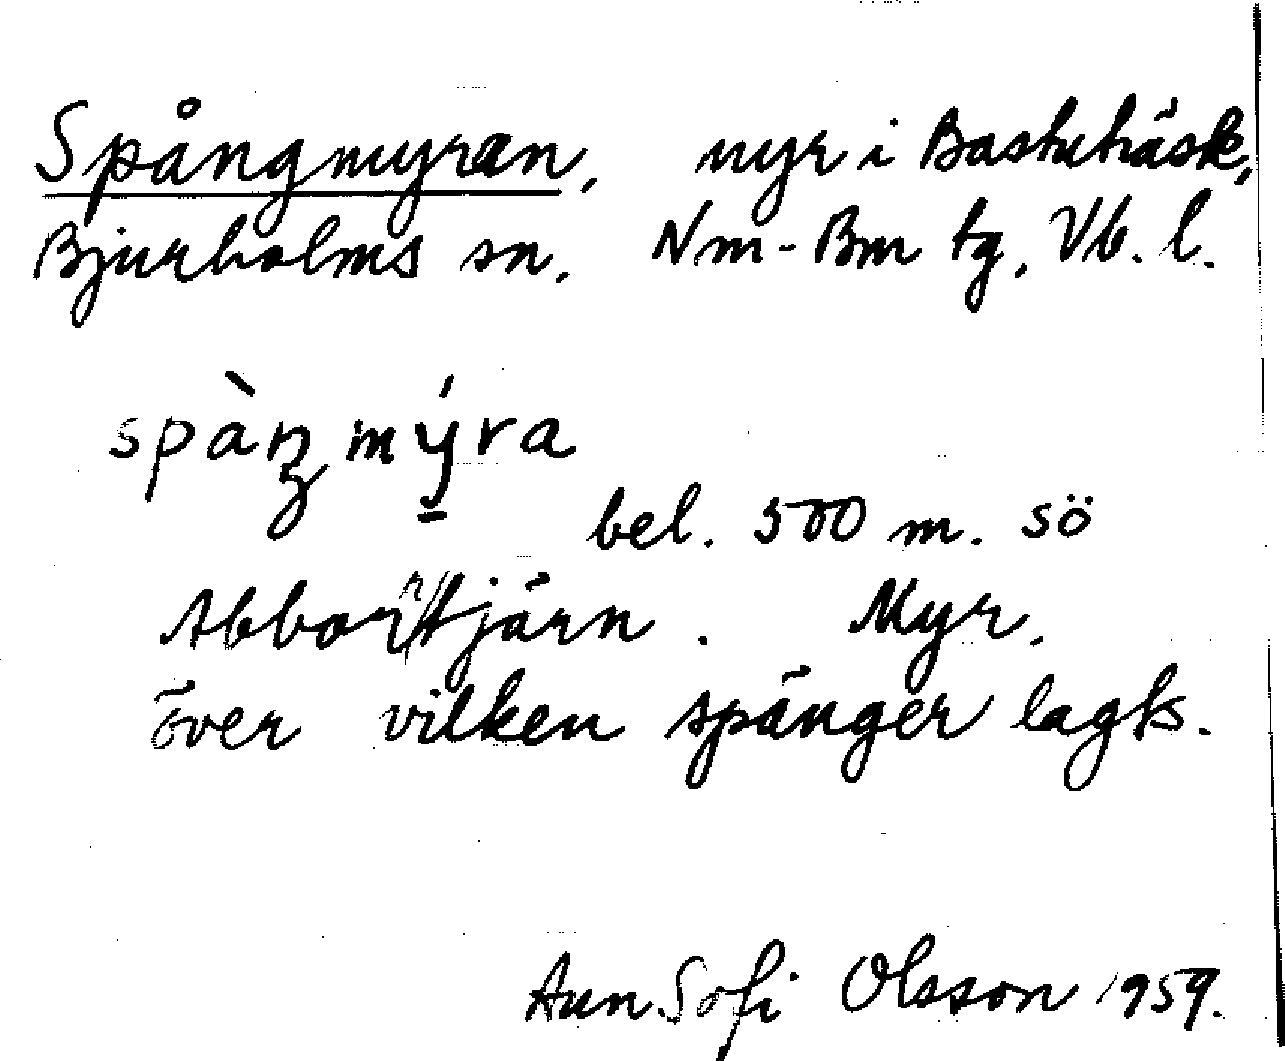 Spångmyran, myr i Bastuträsk,
Bjurholms sn, Nm-Bm tg, Vb. l.
spàŋmýra
bel. 500 m. sö
Abborrtjärn. Myr,
över vilken spänger lagts.
Ann. Sofi Olsson 1959.